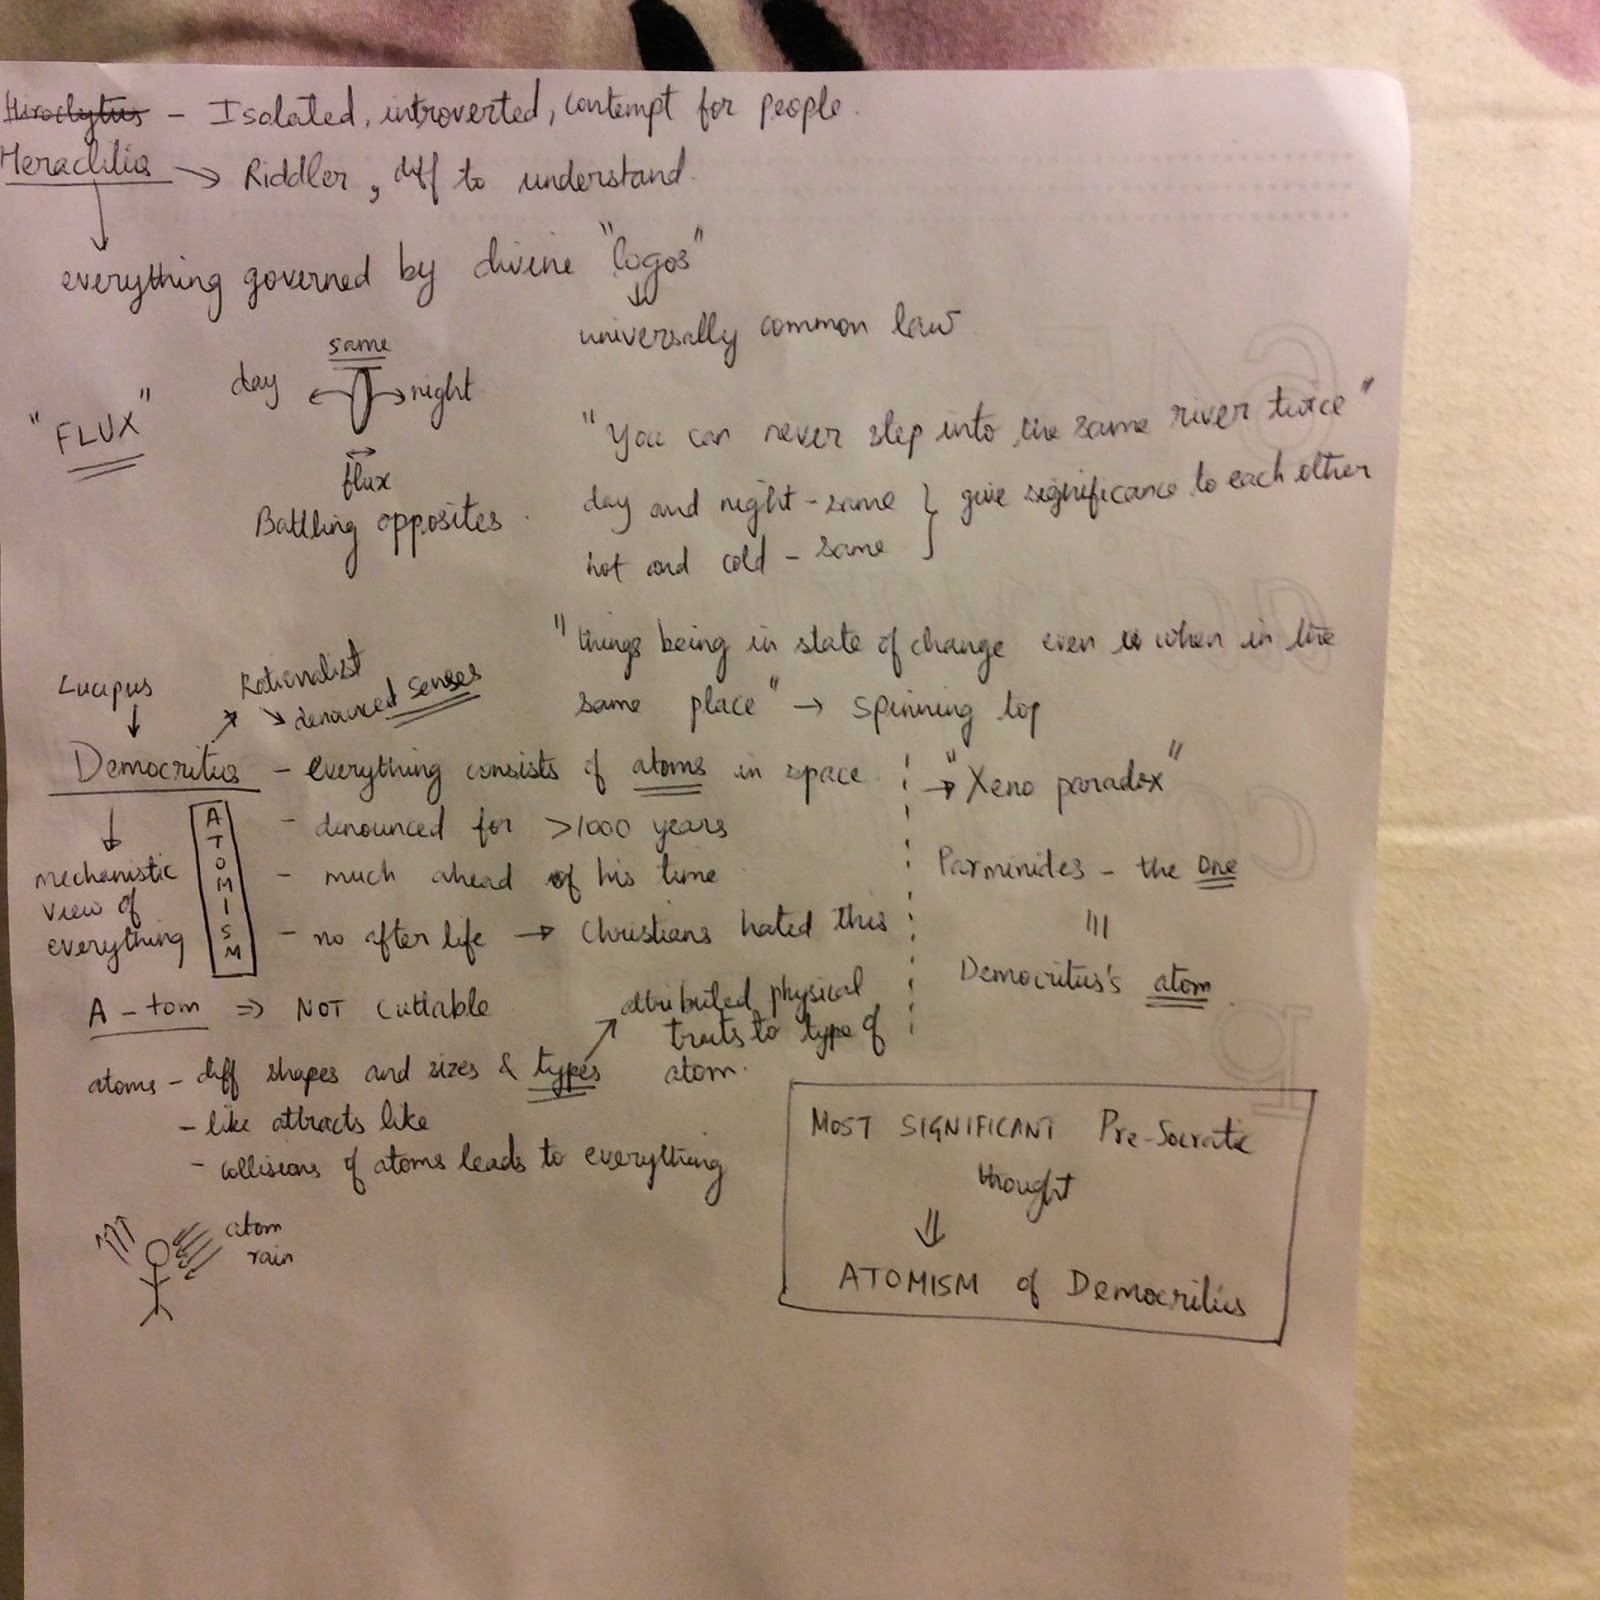 Hiroclytus - Isolated, introverted, contempt for people.
Heraclitis → Riddler, diff to understand.
everything governed by divine "logos"
universally common law
"FLUX"
same
day ← → night
flux
Battling opposites.
"You can never step into the same river twice"
day and night - same } give significance to each other
hot and cold - same
"things being in state of change even when in the
same place" → spinning top
Lucipus
Rationalist
denounced senses
Democritus - everything consists of atoms in space.
- dinounced for >1000 years
- much ahead of his time
- no after life → Christians hated this
ATOMISM
mechanistic
view of
everything
→ "Xeno paradox"
Parminides - the One
Democritus's atom.
A-tom ⇒ NOT cuttable
attributed physical
traits to type of
atom.
atoms - diff shapes and sizes & types
- like attracts like
- collisions of atoms leads to everything
atom
rain
MOST SIGNIFICANT Pre-Socratic
thought
⇓
ATOMISM of Democritus